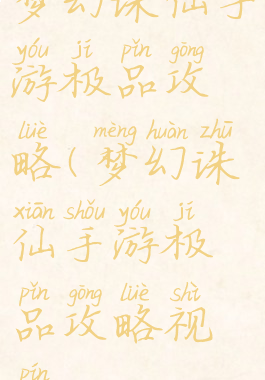 梦幻诛仙手
yóu jí pǐn gōng
游极品攻
lüè mèng huàn zhū
略(梦幻诛
xiān shǒu yóu jí
仙手游极
pǐn gōng lüè shì
品攻略视
pín